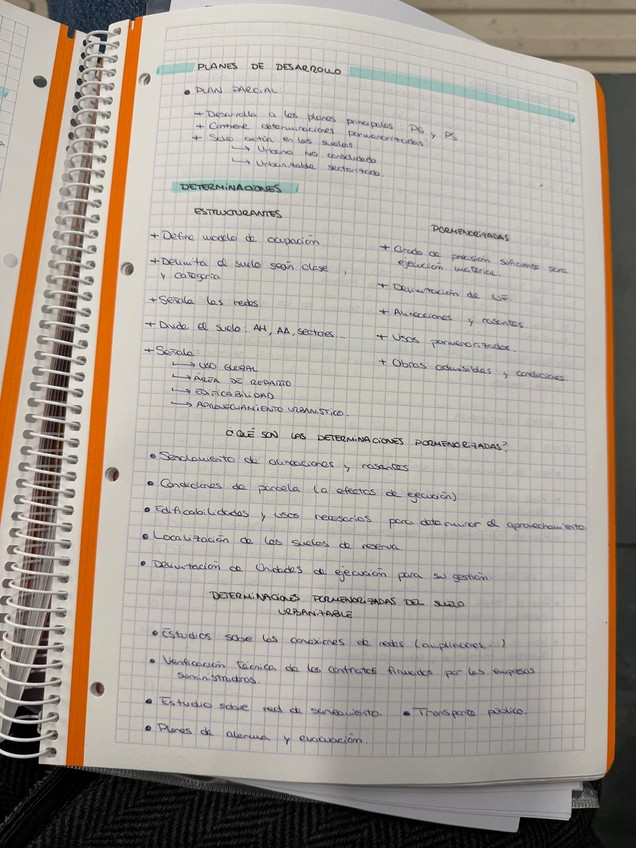 PLANES DE DESARROLLO
• PLAN PARCIAL:
+ Desarrolla a los planes principales: PG y PS
+ Contiene determinaciones pormenorizadas.
+ Solo actúa en los suelos
↳ Urbano No consolidado
↳ Urbanizable sectorizado.
DETERMINACIONES
ESTRUCTURANTES
+ Define modelo de ocupación
+ Delimita el suelo según clase
y categoría
+ Señala las redes.
+ Divide el suelo: AH, AA, sectores...
+ Señala
↳ USO GLOBAL
↳ ÁREA DE REPARTO
↳ EDIFICABILIDAD
↳ APROVECHAMIENTO URBANÍSTICO.
PORMENORIZADAS
+ Grado de precisión suficiente para
ejecución material.
+ Delimitación de UE
+ Alineaciones y rasantes.
+ Usos pormenorizados.
+ Obras admisibles y condiciones
¿QUÉ SON LAS DETERMINACIONES PORMENORIZADAS?
• Señalamiento de alineaciones y rasantes
• Condiciones de parcela (a efectos de ejecución)
• Edificabilidades y usos necesarios para determinar el aprovechamiento
• Localización de los suelos de reserva.
• Delimitación de Unidades de ejecución para su gestión
DETERMINACIONES PORMENORIZADAS DEL SUELO
URBANIZABLE
• Estudios sobre las conexiones de redes (ampliaciones...)
• Verificación técnica de los contratos firmados por las empresas
suministradoras.
• Estudio sobre red de saneamiento. • Transporte público.
• Planes de alarma y evacuación.